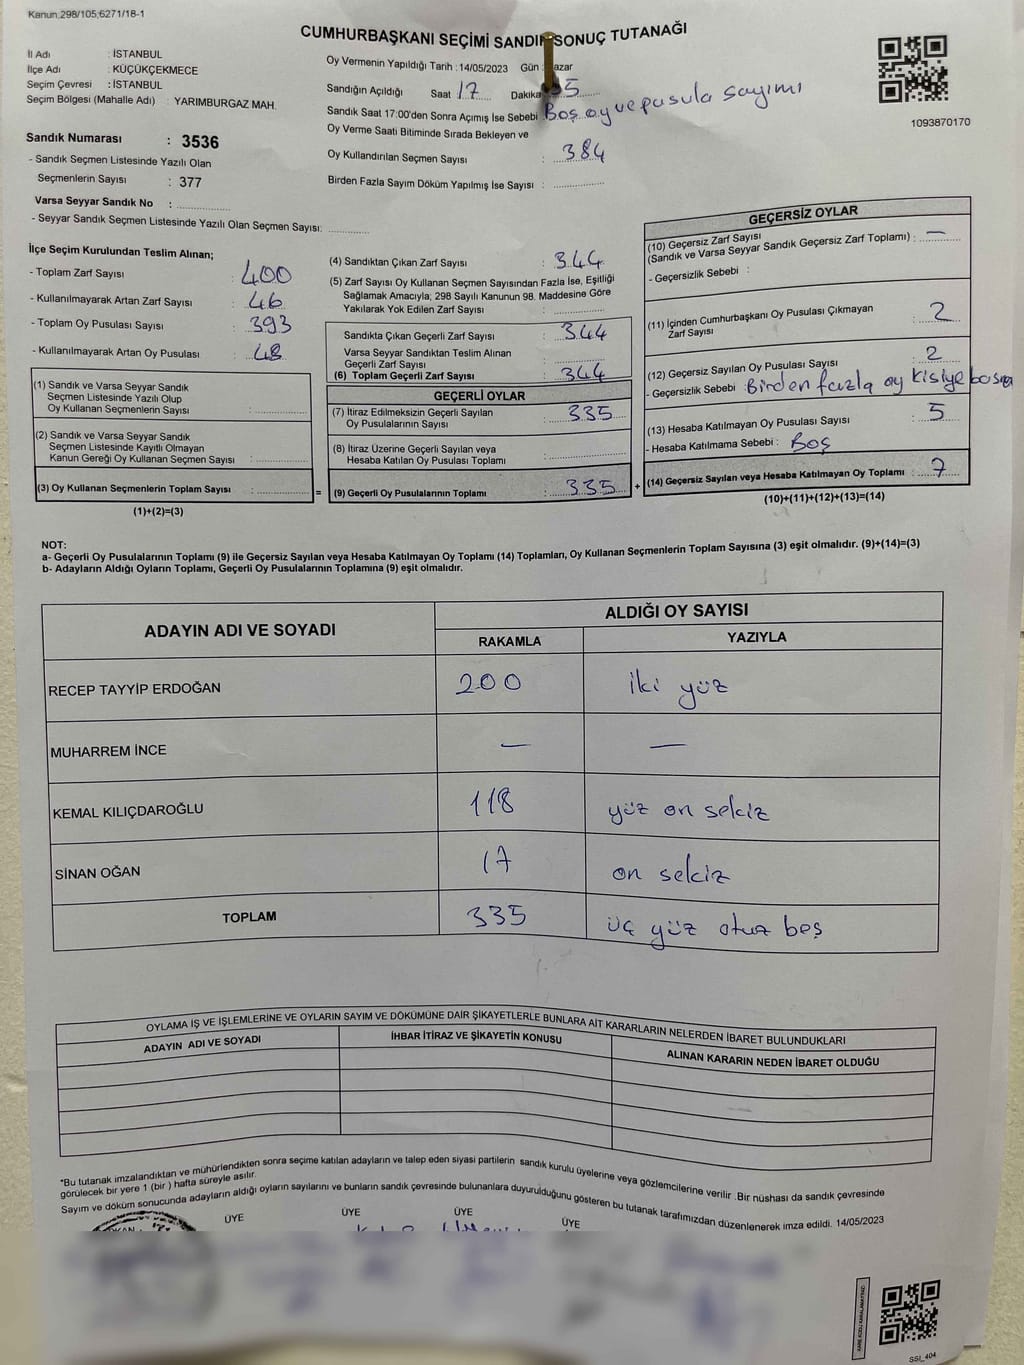 Kanun 298/105;6271/18-1
CUMHURBAŞKANI SEÇİMİ SANDIK SONUÇ TUTANAĞI
İl Adı : İSTANBUL
İlçe Adı : KÜÇÜKÇEKMECE
Seçim Çevresi : İSTANBUL
Seçim Bölgesi (Mahalle Adı) : YARIMBURGAZ MAH.
Oy Vermenin Yapıldığı Tarih : 14/05/2023 Gün : Pazar
Sandığın Açıldığı Saat 17 Dakika 35
Sandık Saat 17:00'den Sonra Açımış İse Sebebi Boş oy ve pusula sayımı
Oy Verme Saati Bitiminde Sırada Bekleyen ve
Oy Kullandırılan Seçmen Sayısı : 384
Birden Fazla Sayım Döküm Yapılmış İse Sayısı :
1093870170
Sandık Numarası : 3536
- Sandık Seçmen Listesinde Yazılı Olan
Seçmenlerin Sayısı : 377
Varsa Seyyar Sandık No :
- Seyyar Sandık Seçmen Listesinde Yazılı Olan Seçmen Sayısı:
İlçe Seçim Kurulundan Teslim Alınan;
- Toplam Zarf Sayısı : 400
- Kullanılmayarak Artan Zarf Sayısı : 46
- Toplam Oy Pusulası Sayısı : 393
- Kullanılmayarak Artan Oy Pusulası : 48
(1) Sandık ve Varsa Seyyar Sandık
Seçmen Listesinde Yazılı Olup
Oy Kullanan Seçmenlerin Sayısı :
(2) Sandık ve Varsa Seyyar Sandık
Seçmen Listesinde Kayıtlı Olmayan
Kanun Gereği Oy Kullanan Seçmen Sayısı :
(3) Oy Kullanan Seçmenlerin Toplam Sayısı : =
(1)+(2)=(3)
(4) Sandıktan Çıkan Zarf Sayısı : 344
(5) Zarf Sayısı Oy Kullanan Seçmen Sayısından Fazla İse, Eşitliği
Sağlamak Amacıyla; 298 Sayılı Kanunun 98. Maddesine Göre
Yakılarak Yok Edilen Zarf Sayısı :
Sandıkta Çıkan Geçerli Zarf Sayısı : 344
Varsa Seyyar Sandıktan Teslim Alınan
Geçerli Zarf Sayısı :
(6) Toplam Geçerli Zarf Sayısı : 344
GEÇERLİ OYLAR
(7) İtiraz Edilmeksizin Geçerli Sayılan
Oy Pusulalarının Sayısı : 335
(8) İtiraz Üzerine Geçerli Sayılan veya
Hesaba Katılan Oy Pusulası Toplamı :
(9) Geçerli Oy Pusulalarının Toplamı : 335 +
GEÇERSİZ OYLAR
(10) Geçersiz Zarf Sayısı
(Sandık ve Varsa Seyyar Sandık Geçersiz Zarf Toplamı) : —
- Geçersizlik Sebebi :
(11) İçinden Cumhurbaşkanı Oy Pusulası Çıkmayan
Zarf Sayısı : 2
(12) Geçersiz Sayılan Oy Pusulası Sayısı : 2
- Geçersizlik Sebebi : Birden fazla oy kişiye basma
(13) Hesaba Katılmayan Oy Pusulası Sayısı : 5
- Hesaba Katılmama Sebebi : Boş
(14) Geçersiz Sayılan veya Hesaba Katılmayan Oy Toplamı : 7
(10)+(11)+(12)+(13)=(14)
NOT:
a- Geçerli Oy Pusulalarının Toplamı (9) ile Geçersiz Sayılan veya Hesaba Katılmayan Oy Toplamı (14) Toplamları, Oy Kullanan Seçmenlerin Toplam Sayısına (3) eşit olmalıdır. (9)+(14)=(3)
b- Adayların Aldığı Oyların Toplamı, Geçerli Oy Pusulalarının Toplamına (9) eşit olmalıdır.
ADAYIN ADI VE SOYADI
ALDIĞI OY SAYISI
RAKAMLA YAZIYLA
RECEP TAYYİP ERDOĞAN 200 iki yüz
MUHARREM İNCE — —
KEMAL KILIÇDAROĞLU 118 yüz on sekiz
SİNAN OĞAN 17 on sekiz
TOPLAM 335 üç yüz otuz beş
OYLAMA İŞ VE İŞLEMLERİNE VE OYLARIN SAYIM VE DÖKÜMÜNE DAİR ŞİKAYETLERLE BUNLARA AİT KARARLARIN NELERDEN İBARET BULUNDUKLARI
ADAYIN ADI VE SOYADI İHBAR İTİRAZ VE ŞİKAYETİN KONUSU ALINAN KARARIN NEDEN İBARET OLDUĞU
*Bu tutanak imzalandıktan ve mühürlendikten sonra seçime katılan adayların ve talep eden siyasi partilerin sandık kurulu üyelerine veya gözlemcilerine verilir .Bir nüshası da sandık çevresinde
görülecek bir yere 1 (bir ) hafta süreyle asılır.
Sayım ve döküm sonucunda adayların aldığı oyların sayılarını ve bunların sandık çevresinde bulunanlara duyurulduğunu gösteren bu tutanak tarafımızdan düzenlenerek imza edildi. 14/05/2023
ÜYE ÜYE ÜYE ÜYE
SSI_404